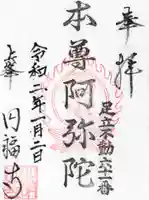 奉拝
足立不動六十一番
本尊阿弥陀
令和二年一月二日
円福寺